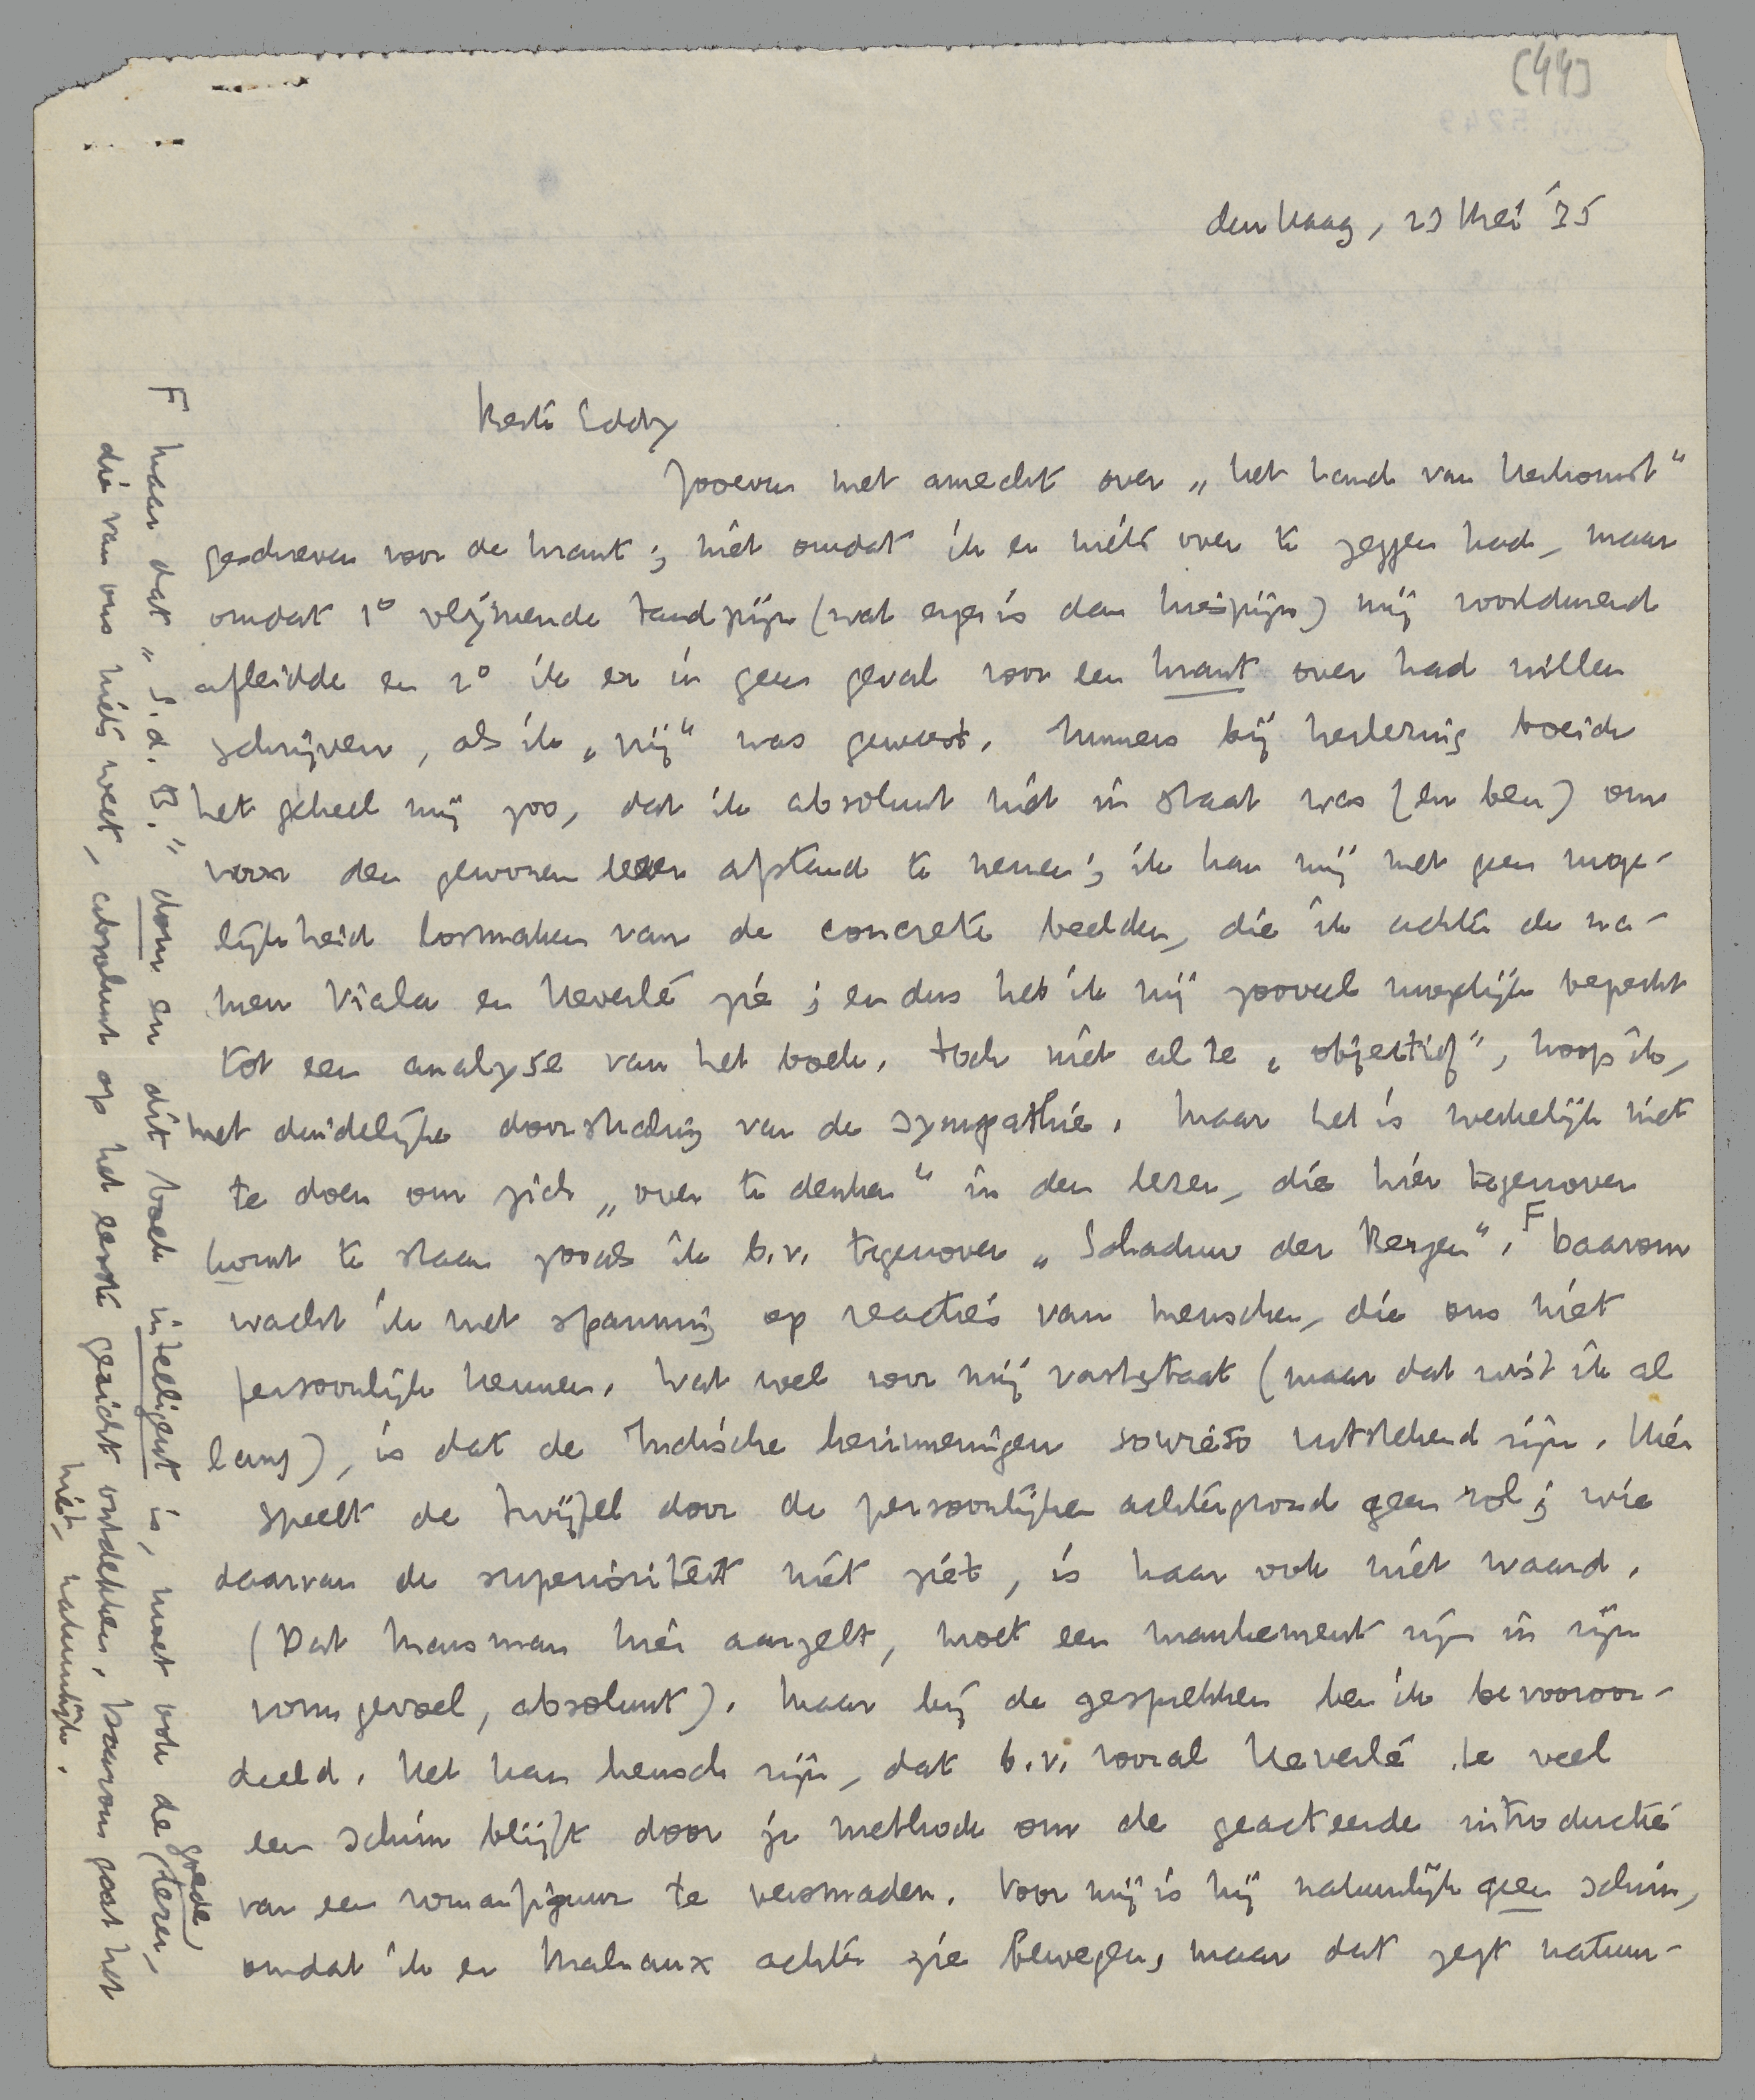 [44]
den Haag, 23 Mei '35
Beste Eddy
Zooeven met onrecht over „Het Land van Herkomst"
geschreven voor de krant; niet omdat ik er niets over te zeggen had, maar
omdat 1° vlijmende tandpijn (wat erger is dan kiespijn) mij voortdurend
afleidde en 2° ik er in geen geval voor een krant over had willen
schrijven, als ik „vrij" was geweest. Immers bij herlezing boeide
het geheel mij zoo, dat ik absoluut niet in staat was (en ben) om
voor den gewonen lezer afstand te nemen; ik kan mij met geen moge-
lijkheid losmaken van de concrete beelden, die ik achter de na-
men Viala en Heverlé zie; en dus heb ik mij zooveel mogelijk beperkt
tot een analyse van het boek. Toch niet al te „objectief", hoop ik,
met duidelijke doorstraling van de sympathie. Maar het is werkelijk niet
te doen om zich „over te denken" in den lezer, die hier tegenover
komt te staan zooals ik b.v. tegenover „Schaduw der Bergen". F Daarom
wacht ik met spanning op reacties van menschen, die ons niet
persoonlijk kennen. Wat wel voor mij vaststaat (maar dat wist ik al
lang), is dat de Indische herinneringen sowieso uitstekend zijn. Hier
speelt de twijfel door de persoonlijken achtergrond geen rol; wie
daarvan de superioriteit niet ziet, is haar ook niet waard.
(Dat Marsman hier aarzelt, moet een mankement zijn in zijn
vormgevoel, absoluut). Maar bij de gesprekken ben ik bevooroor-
deeld. Het kan heusch zijn, dat b.v. vooral Heverlé te veel
een schim blijft door je methode om de geacteerde introductie
van een romanfiguur te versmaden. Voor mij is hij natuurlijk geen schim,
omdat ik er Malraux achter zie bewegen, maar dat zegt natuur-
F Maar dat „S.d.B." dom en dit boek intelligent is, moet ook de goede lezer,
die van ons niets weet, absoluut op het eerste gezicht ontdekken. Daarom gaat het
niet, natuurlijk.